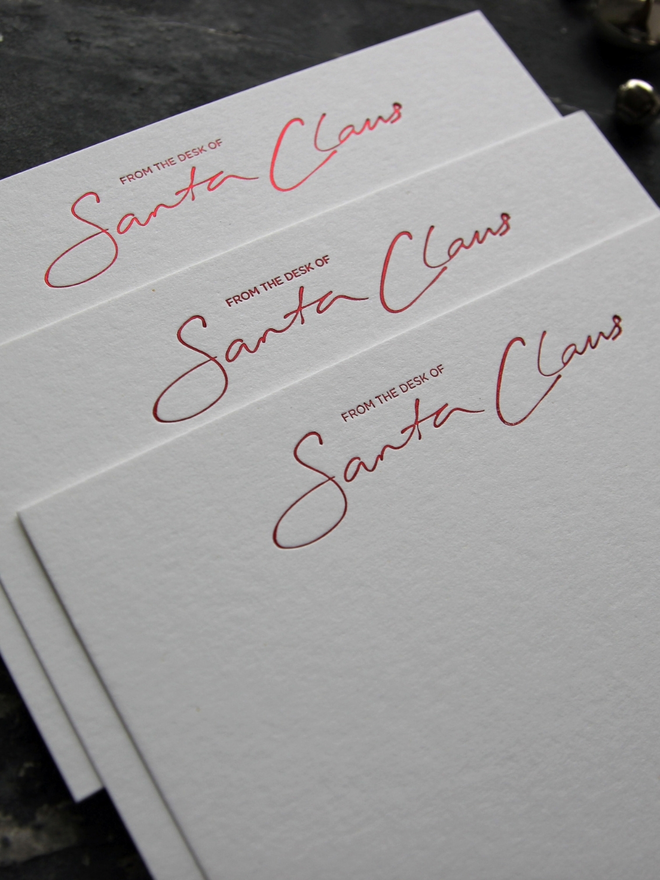 FROM THE DESK OF
Santa Claus
FROM THE DESK OF
Santa Claus
FROM THE DESK OF
Santa Claus